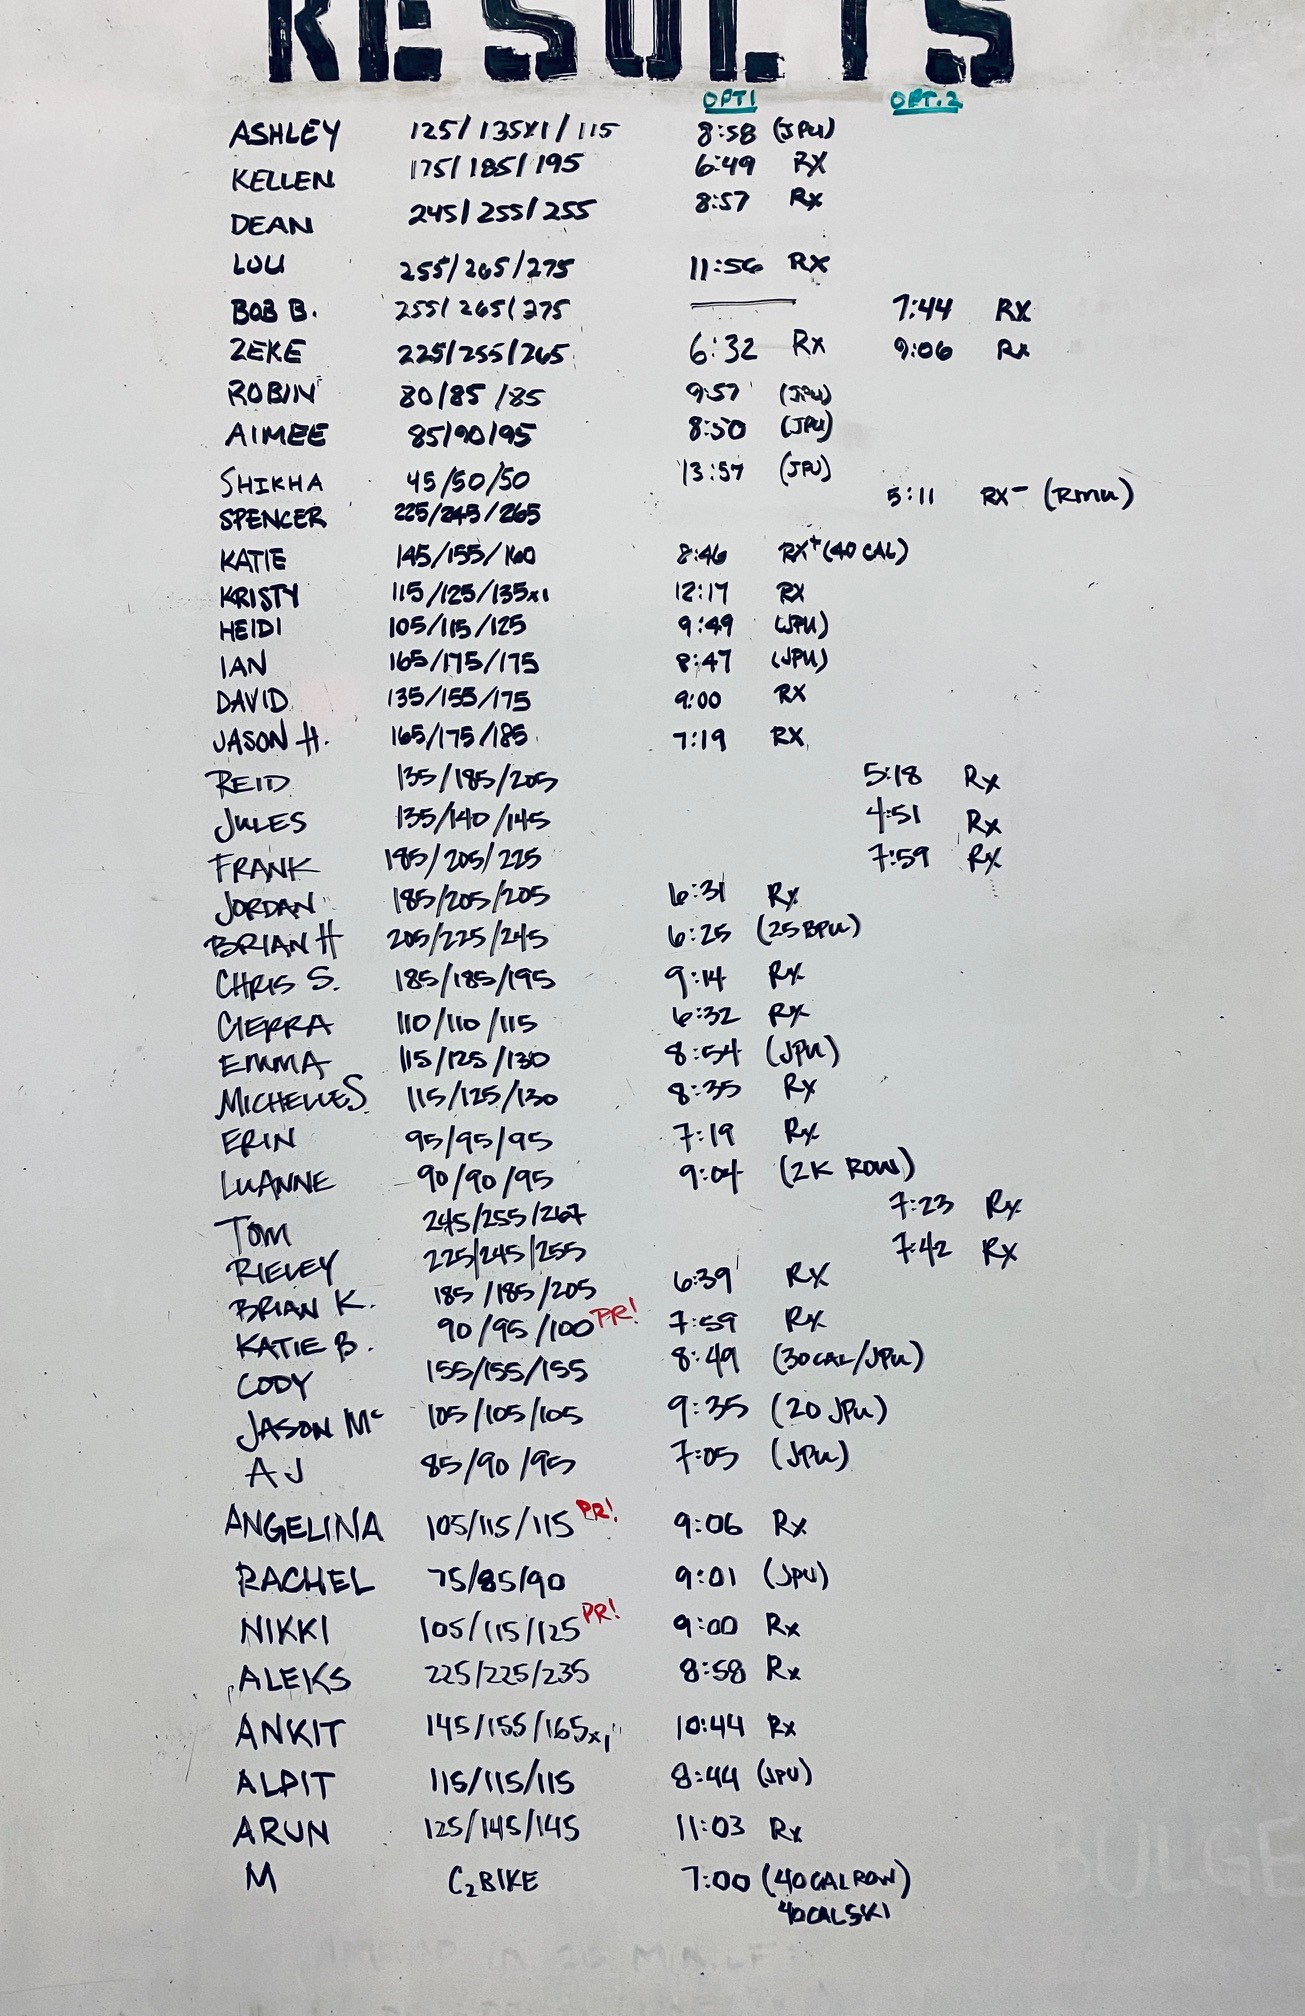 RESULTS
OPT1 OPT.2
ASHLEY 125/135x1/115 8:58 (JPU)
KELLEN 175/185/195 6:49 RX
DEAN 245/255/255 8:57 Rx
LOU 255/265/275 11:56 RX
BOB B. 255/265/275 7:44 RX
ZEKE 225/255/265 6:32 Rx 9:06 Rx
ROBIN 80/85/85 9:57 (JPU)
AIMEE 85/90/95 8:50 (JPU)
SHIKHA 45/50/50 13:57 (JPU)
SPENCER 225/245/265 5:11 RX- (RMU)
KATIE 145/155/160 8:46 RX+ (40 CAL)
KRISTY 115/125/135x1 12:17 RX
HEIDI 105/115/125 9:49 (JPU)
IAN 165/175/175 8:47 (JPU)
DAVID 135/155/175 9:00 RX
JASON H. 165/175/185 7:19 RX
REID 135/185/205 5:18 Rx
JULES 135/140/145 4:51 Rx
FRANK 185/205/225 7:59 Rx
JORDAN 185/205/205 6:31 Rx
BRIAN H 205/225/245 6:25 (25 BPU)
CHRIS S. 185/185/195 9:14 Rx
CIERRA 110/110/115 6:32 Rx
EMMA 115/125/130 8:54 (JPU)
MICHELLE S 115/125/130 8:35 Rx
ERIN 95/95/95 7:19 Rx
LUANNE 90/90/95 9:04 (2K ROW)
TOM 245/255/267 7:23 Rx
RIELEY 225/245/255 7:42 Rx
BRIAN K. 185/185/205 6:39 RX
KATIE B. 90/95/100 PR! 7:59 Rx
CODY 155/155/155 8:49 (30CAL/JPU)
JASON Mc 105/105/105 9:35 (20 JPU)
AJ 85/90/95 7:05 (JPU)
ANGELINA 105/115/115 PR! 9:06 Rx
RACHEL 75/85/90 9:01 (JPU)
NIKKI 105/115/125 PR! 9:00 Rx
ALEKS 225/225/235 8:58 Rx
ANKIT 145/155/165x1 10:44 Rx
ALPIT 115/115/115 8:44 (JPU)
ARUN 125/145/145 11:03 Rx
M C2 BIKE 7:00 (40CAL ROW)
40CAL SKI
BULGE